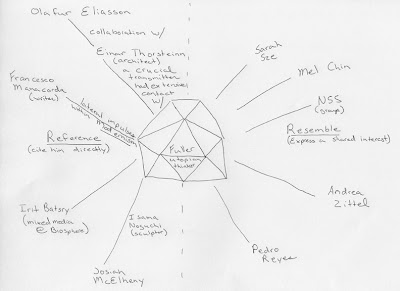 Olafur Eliasson
collaboration w/
Einar Thorsteinn
(architect)
a crucial
transmitter
had extensive
contact
w/
Francesco
Manacorda
(writer)
latent impulses
within modernism
Reference
(cite him directly)
Irit Batsry
(mixed media
@ Biosphere)
Josiah
McElheny
Isamu
Noguchi
(sculptor)
Fuller
utopian
thinker
Sarah
Sze
Mel Chin
N55
(group)
Resemble
(Express a shared interest)
Andrea
Zittel
Pedro
Reyes